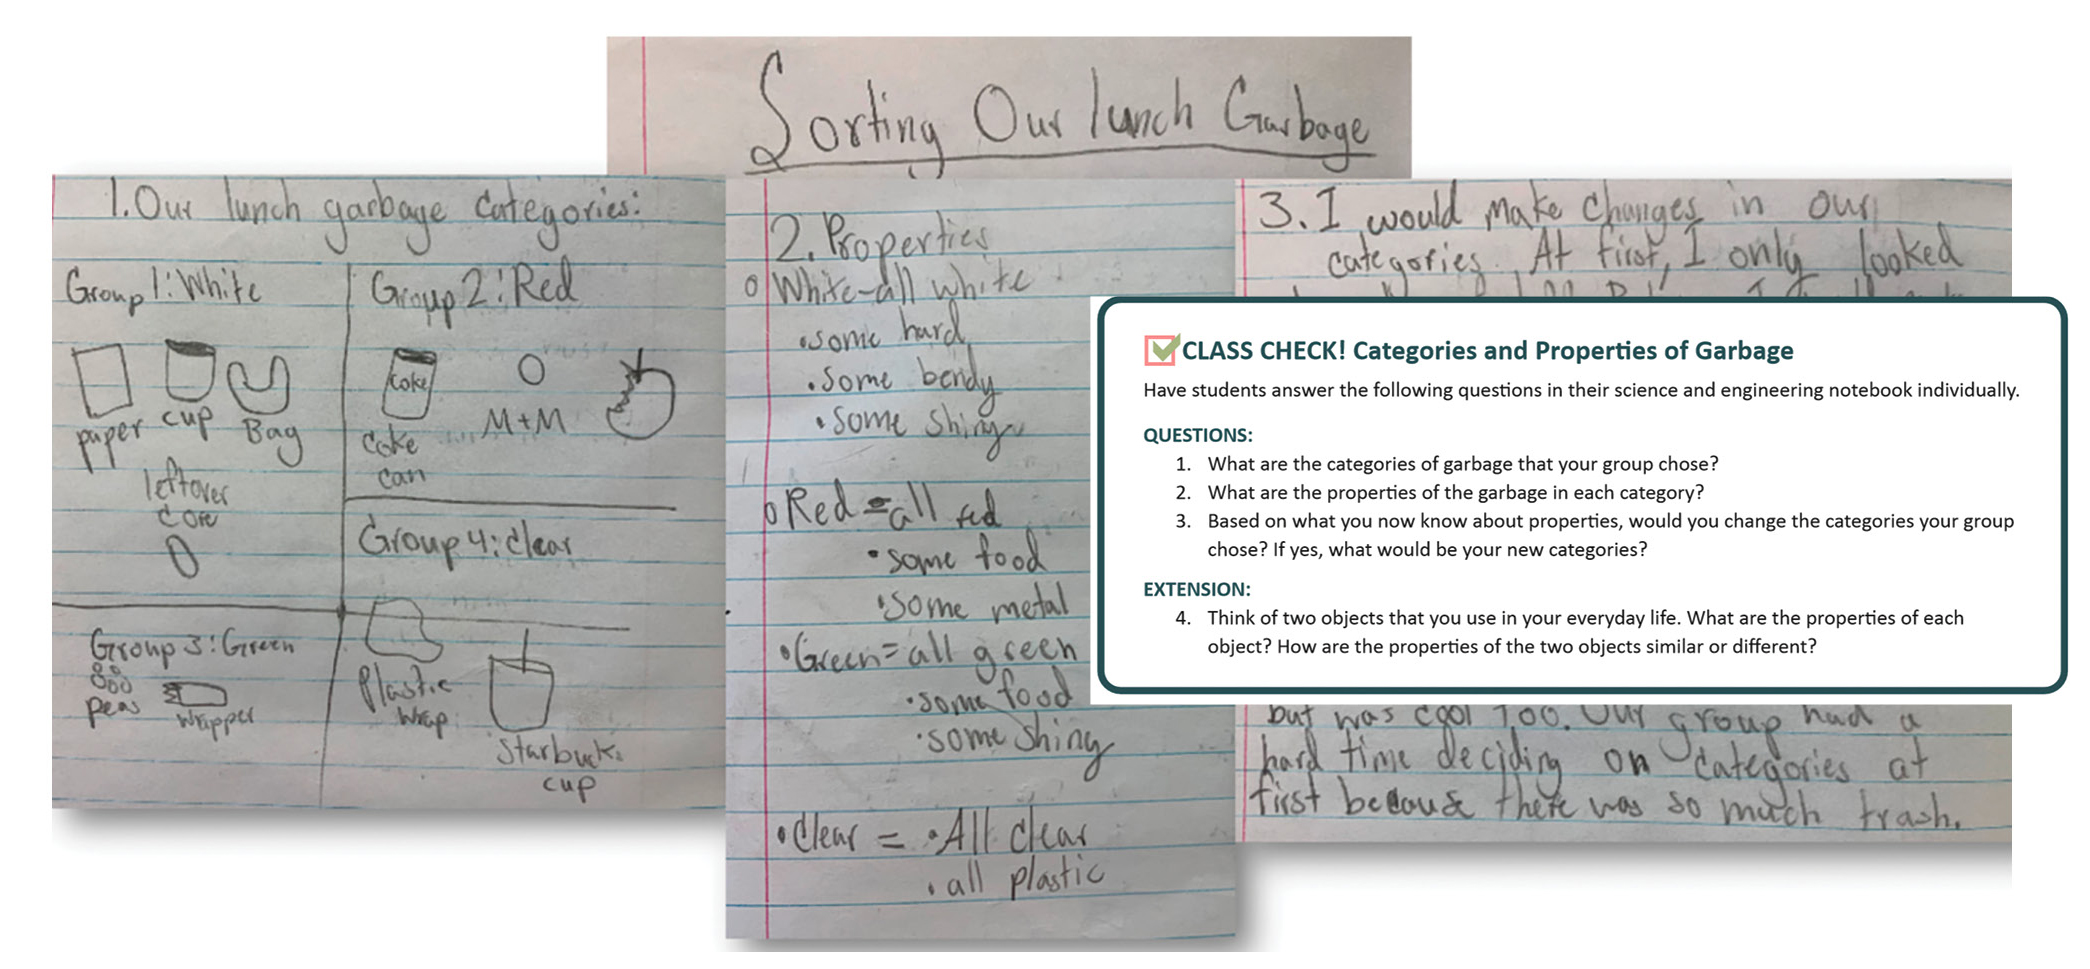 Sorting Our lunch Garbage
1. Our lunch garbage categories:
Group 1: White
paper
cup
Bag
leftover
core
Group 2: Red
Coke
Coke
can
M+M
Group 3: Green
peas
wrapper
Group 4: Clear
Plastic
Wrap
Starbucks
cup
2. Properties
White-all white
• some hard
• some bendy
• some shiny
Red = all red
• some food
• some metal
• Green = all green
• some food
• some shiny
• Clear = • All clear
• all plastic
3. I would make changes in our
categories. At first, I only looked
but was cool too. Our group had a
hard time deciding on categories at
first because there was so much trash.
CLASS CHECK! Categories and Properties of Garbage
Have students answer the following questions in their science and engineering notebook individually.
QUESTIONS:
1. What are the categories of garbage that your group chose?
2. What are the properties of the garbage in each category?
3. Based on what you now know about properties, would you change the categories your group
chose? If yes, what would be your new categories?
EXTENSION:
4. Think of two objects that you use in your everyday life. What are the properties of each
object? How are the properties of the two objects similar or different?